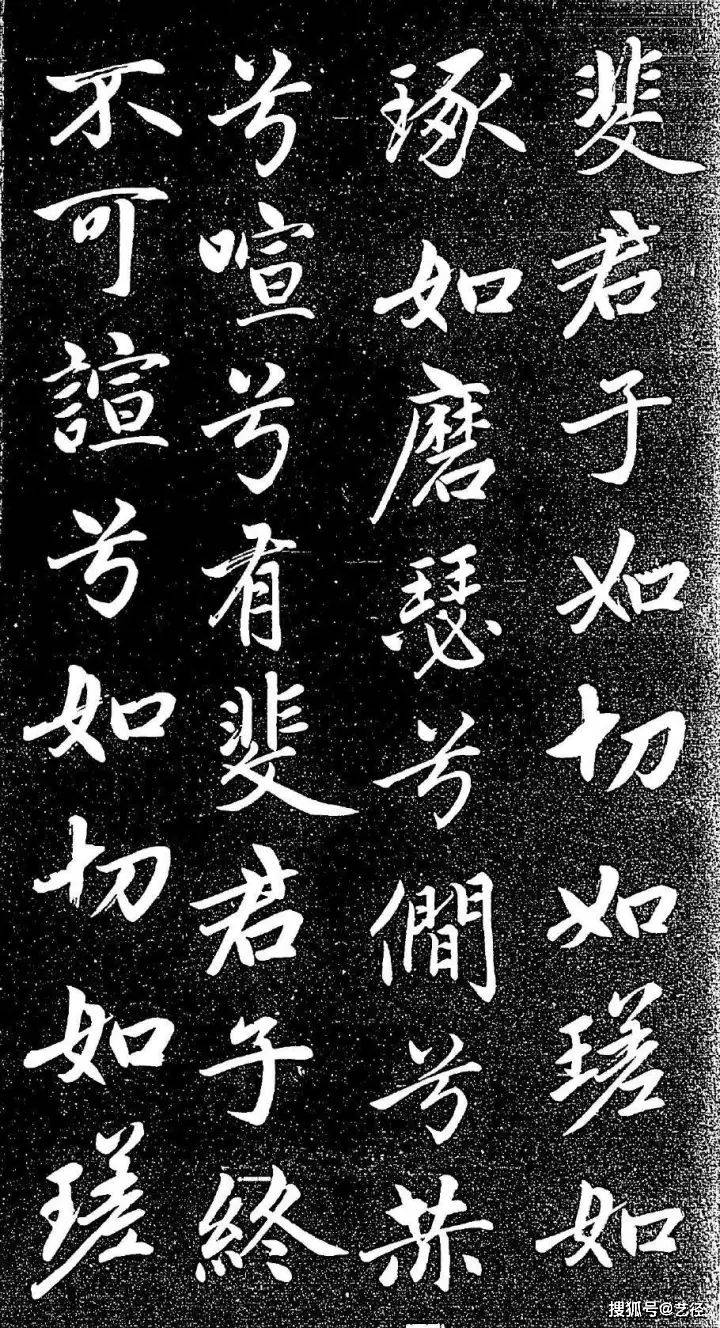 斐君子如切如瑳如
琢如磨瑟兮僩兮赫
兮喧兮有斐君子終
不可諠兮如切如瑳
搜狐号@艺径